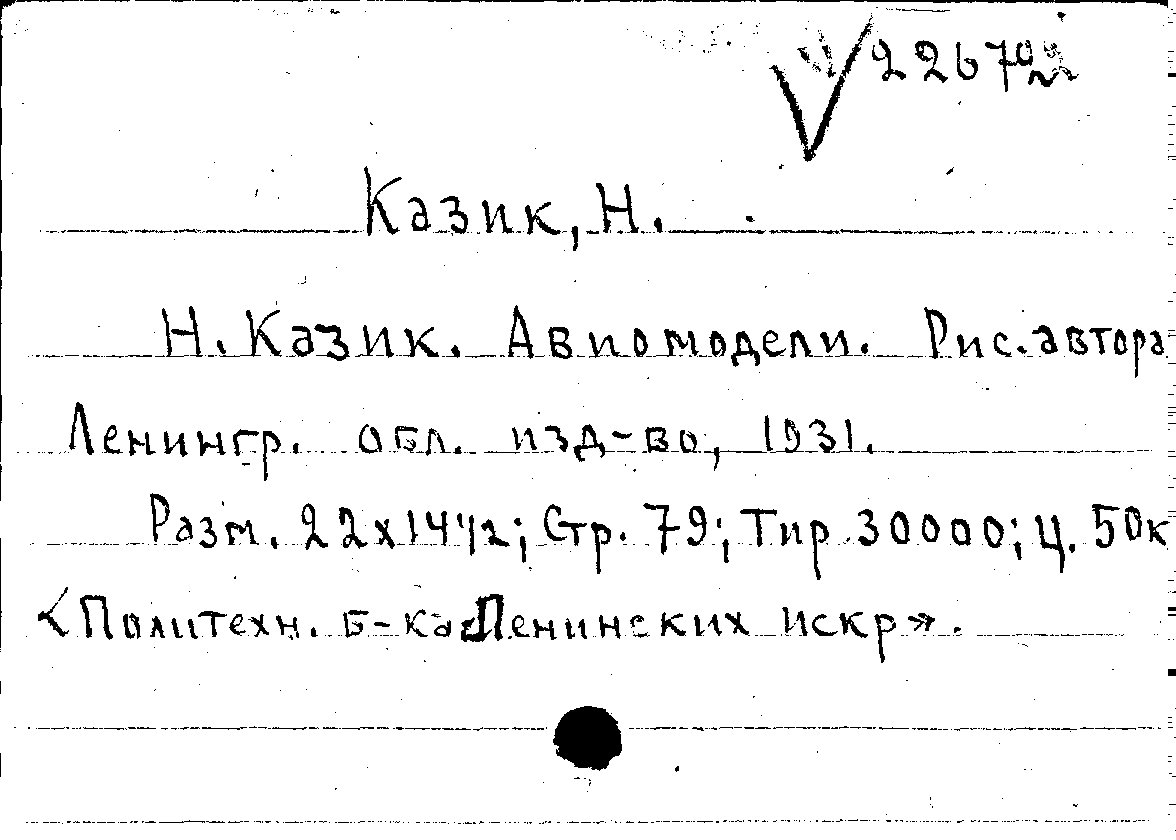 Казик, Н.
Н. Казик. Авиомодели. Рис. автора
Ленингр. обл. изд-во, 1931.
Разм. 22х14 1/2; Стр. 79; Тир. 30000; Ц. 50к
«Политехн. б-ка Ленинских искр».